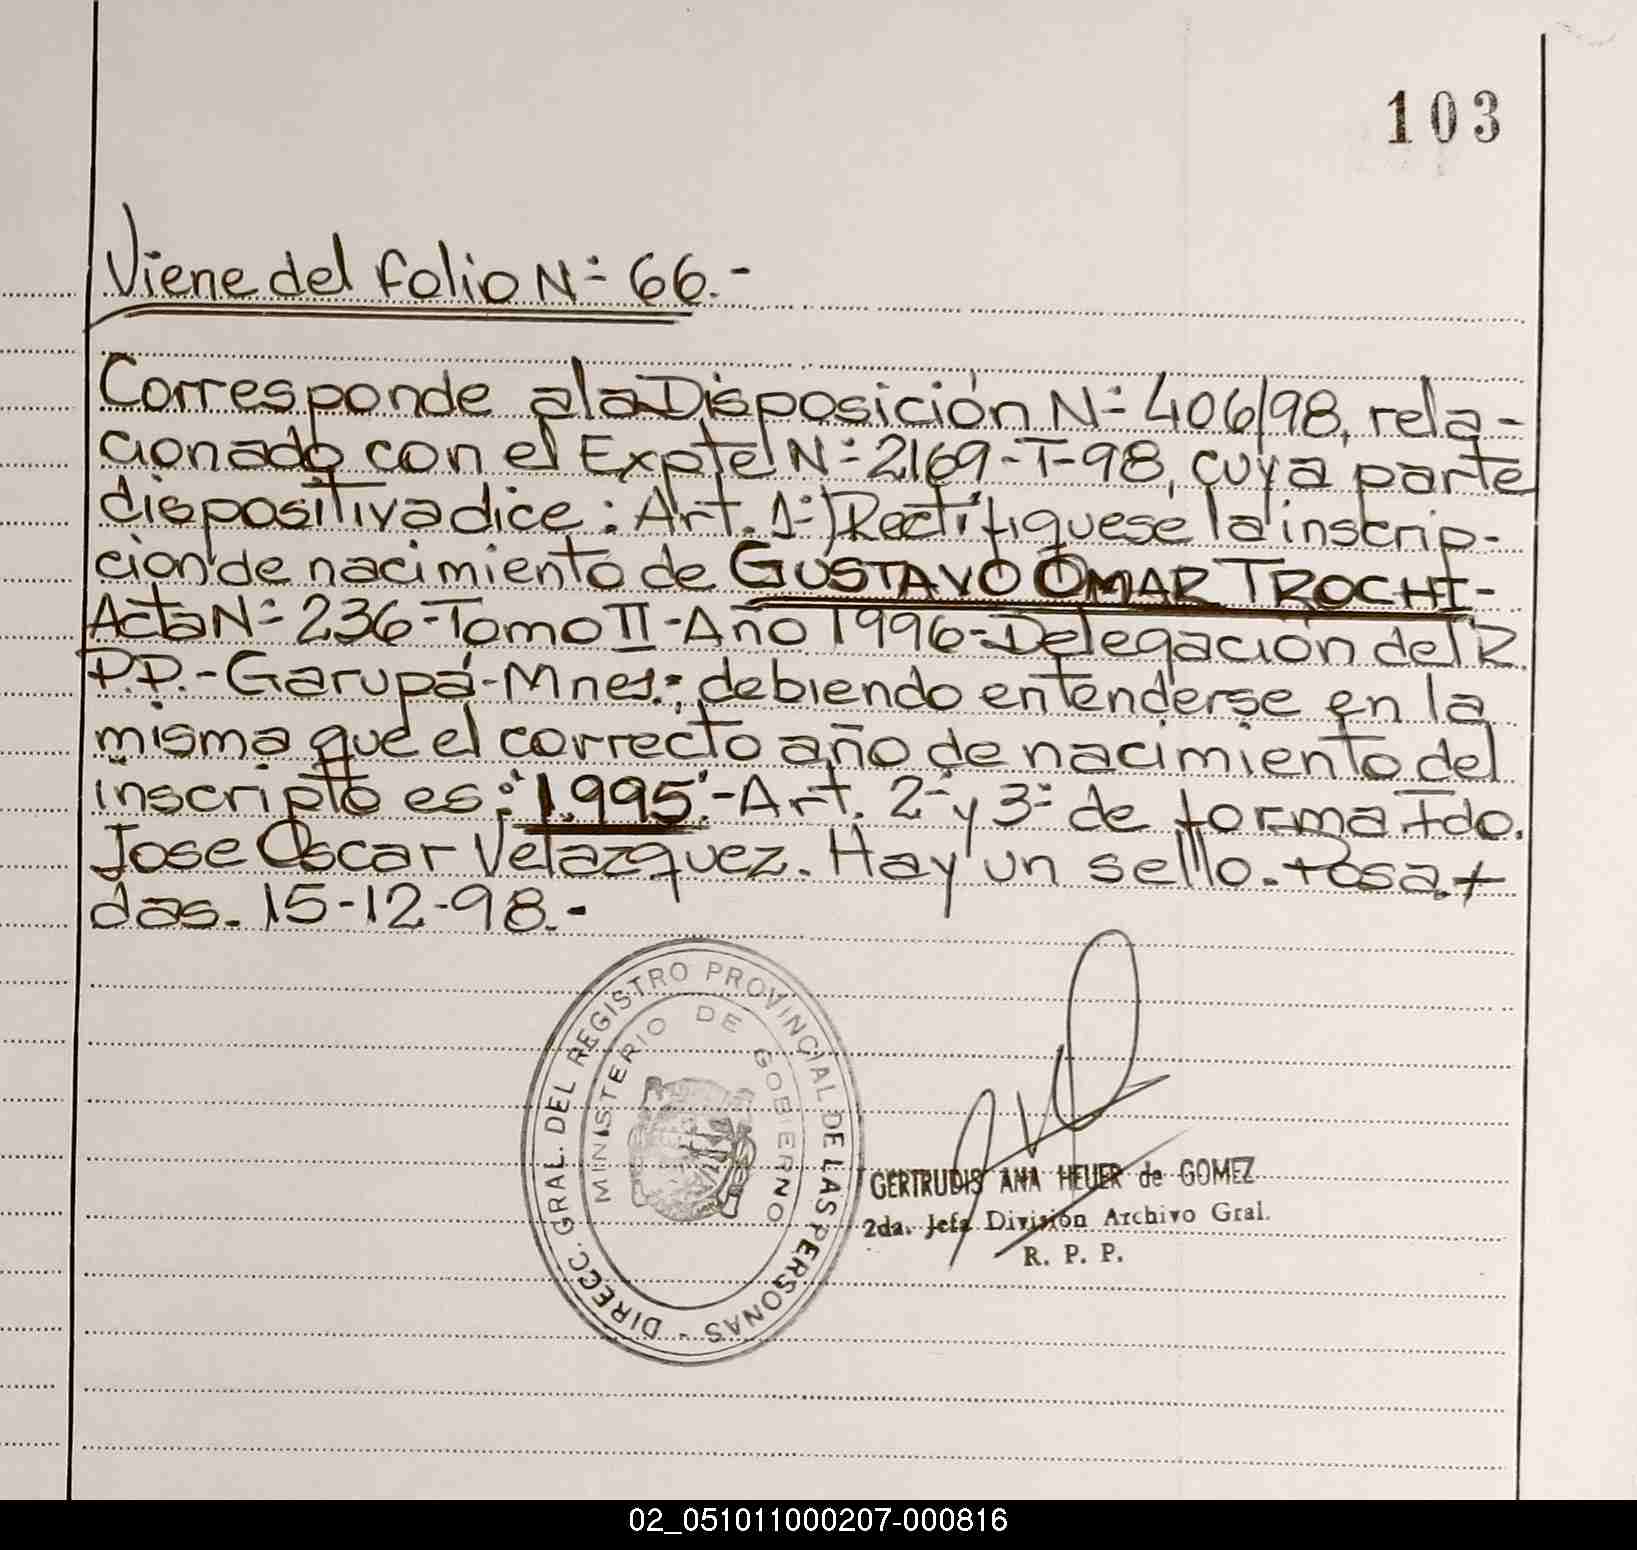 103
Viene del folio Nº 66.-
Corresponde a la Disposición Nº 406/98, rela-
cionado con el Expte Nº 2169-T-98, cuya parte
dispositiva dice: Art. 1º) Rectifiquese la inscrip-
cion de nacimiento de GUSTAVO OMAR TROCHI-
Acta Nº 236-Tomo II-Año 1996-Delegación del R.
P.P.-Garupá-Mnes.; debiendo entenderse en la
misma que el correcto año de nacimiento del
inscripto es: "1.995".-Art. 2º y 3º de forma Fdo.
Jose Oscar Velazquez. Hay un sello. Posa.
das. 15-12-98.-
DIRECC. GRAL. DEL REGISTRO PROVINCIAL DE LAS PERSONAS -
MINISTERIO DE GOBIERNO
GERTRUDIS ANA HEUER de GOMEZ
2da. Jefa División Archivo Gral.
R. P. P.
02_051011000207-000816